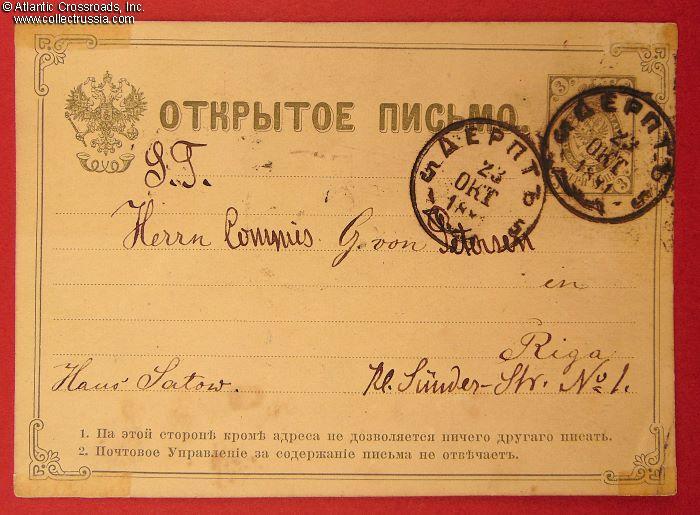 © Atlantic Crossroads, Inc.
www.collectrussia.com
3
ОТКРЫТОЕ ПИСЬМО.
ДЕРПТЪ
23
ОКТ
1881
5
5
ДЕРПТЪ
23
ОКТ
18
5
5
S. T.
Herrn Commis G. von Petersen
in
Riga
Haus Satow. Kl. Sünder-Str. No 1.
1. На этой сторонѣ кромѣ адреса не дозволяется ничего другаго писать.
2. Почтовое Управленіе за содержаніе письма не отвѣчаетъ.